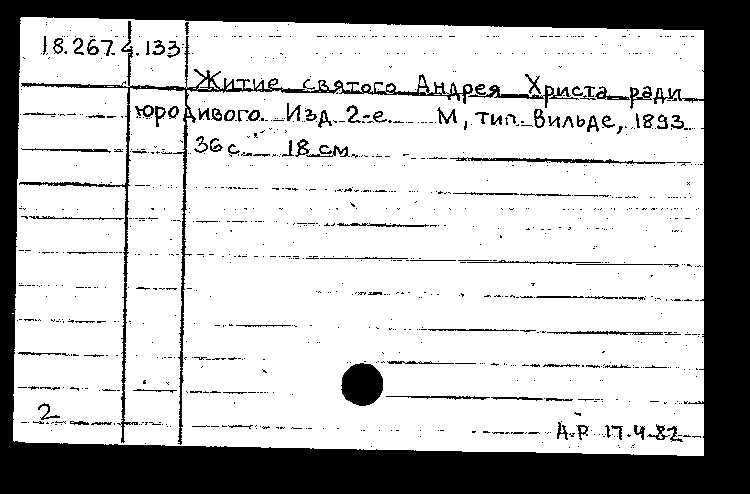 18.267.4.133
Житие святого Андрея Христа ради
юродивого. Изд. 2-е. М, тип. Вильде, 1893.
36 с. 18 см.
2
А.Р 17.4.82